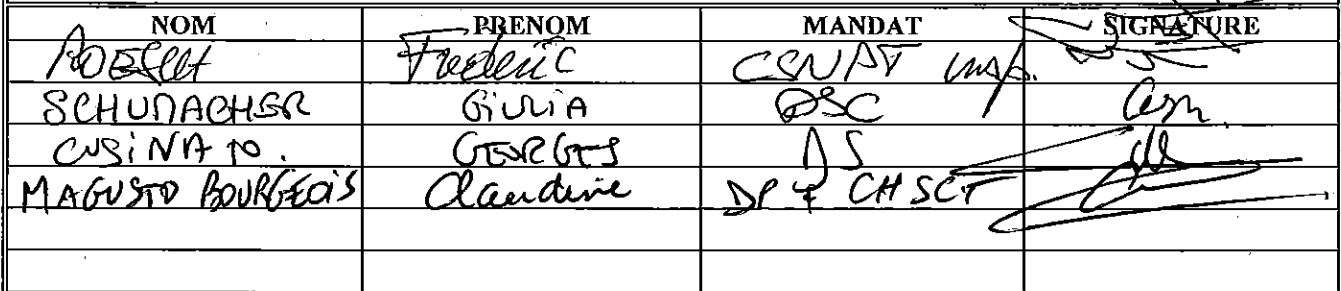 NOM PRENOM MANDAT SIGNATURE
Frédéric
SCHUMACHER GiULiA DSC
CUSiNATO. GEORGES DS
MAGUSTO BOURGEOiS Claudine DP + CHSCT